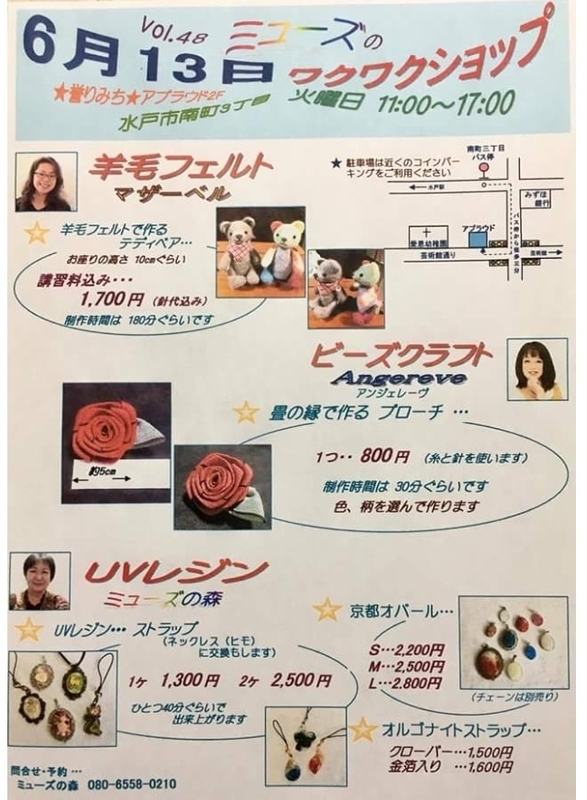 Vol.48 ミューズの
6月13日 ワクワクショップ
★誉りみち★アプラウド2F 火曜日 11:00～17:00
水戸市南町3丁目
羊毛フェルト
マザーベル
★ 駐車場は近くのコインパー
キングをご利用ください
南町三丁目
バス停
水戸駅
みずほ
銀行
愛恩幼稚園
アプラウド
バス停から徒歩三分
芸術館通り
芸術館
羊毛フェルトで作る
テディベア…
お座りの高さ 10cmぐらい
講習料込み・・・
1,700円 (針代込み)
制作時間は 180分ぐらいです
ビーズクラフト
Angereve
アンジェレーヴ
畳の縁で作る ブローチ …
約5cm
1つ・・ 800円 (糸と針を使います)
制作時間は 30分ぐらいです
色、柄を選んで作ります
UVレジン
ミューズの森
UVレジン・・・ ストラップ
(ネックレス(ヒモ)
に交換もします)
1ヶ 1,300円 2ヶ 2,500円
ひとつ40分ぐらいで
出来上がります
京都オパール…
S…2,200円
M…2,500円
L…2,800円
(チェーンは別売り)
オルゴナイトストラップ…
クローバー …1,500円
金箔入り …1,600円
問合せ・予約 …
ミューズの森 080-6558-0210